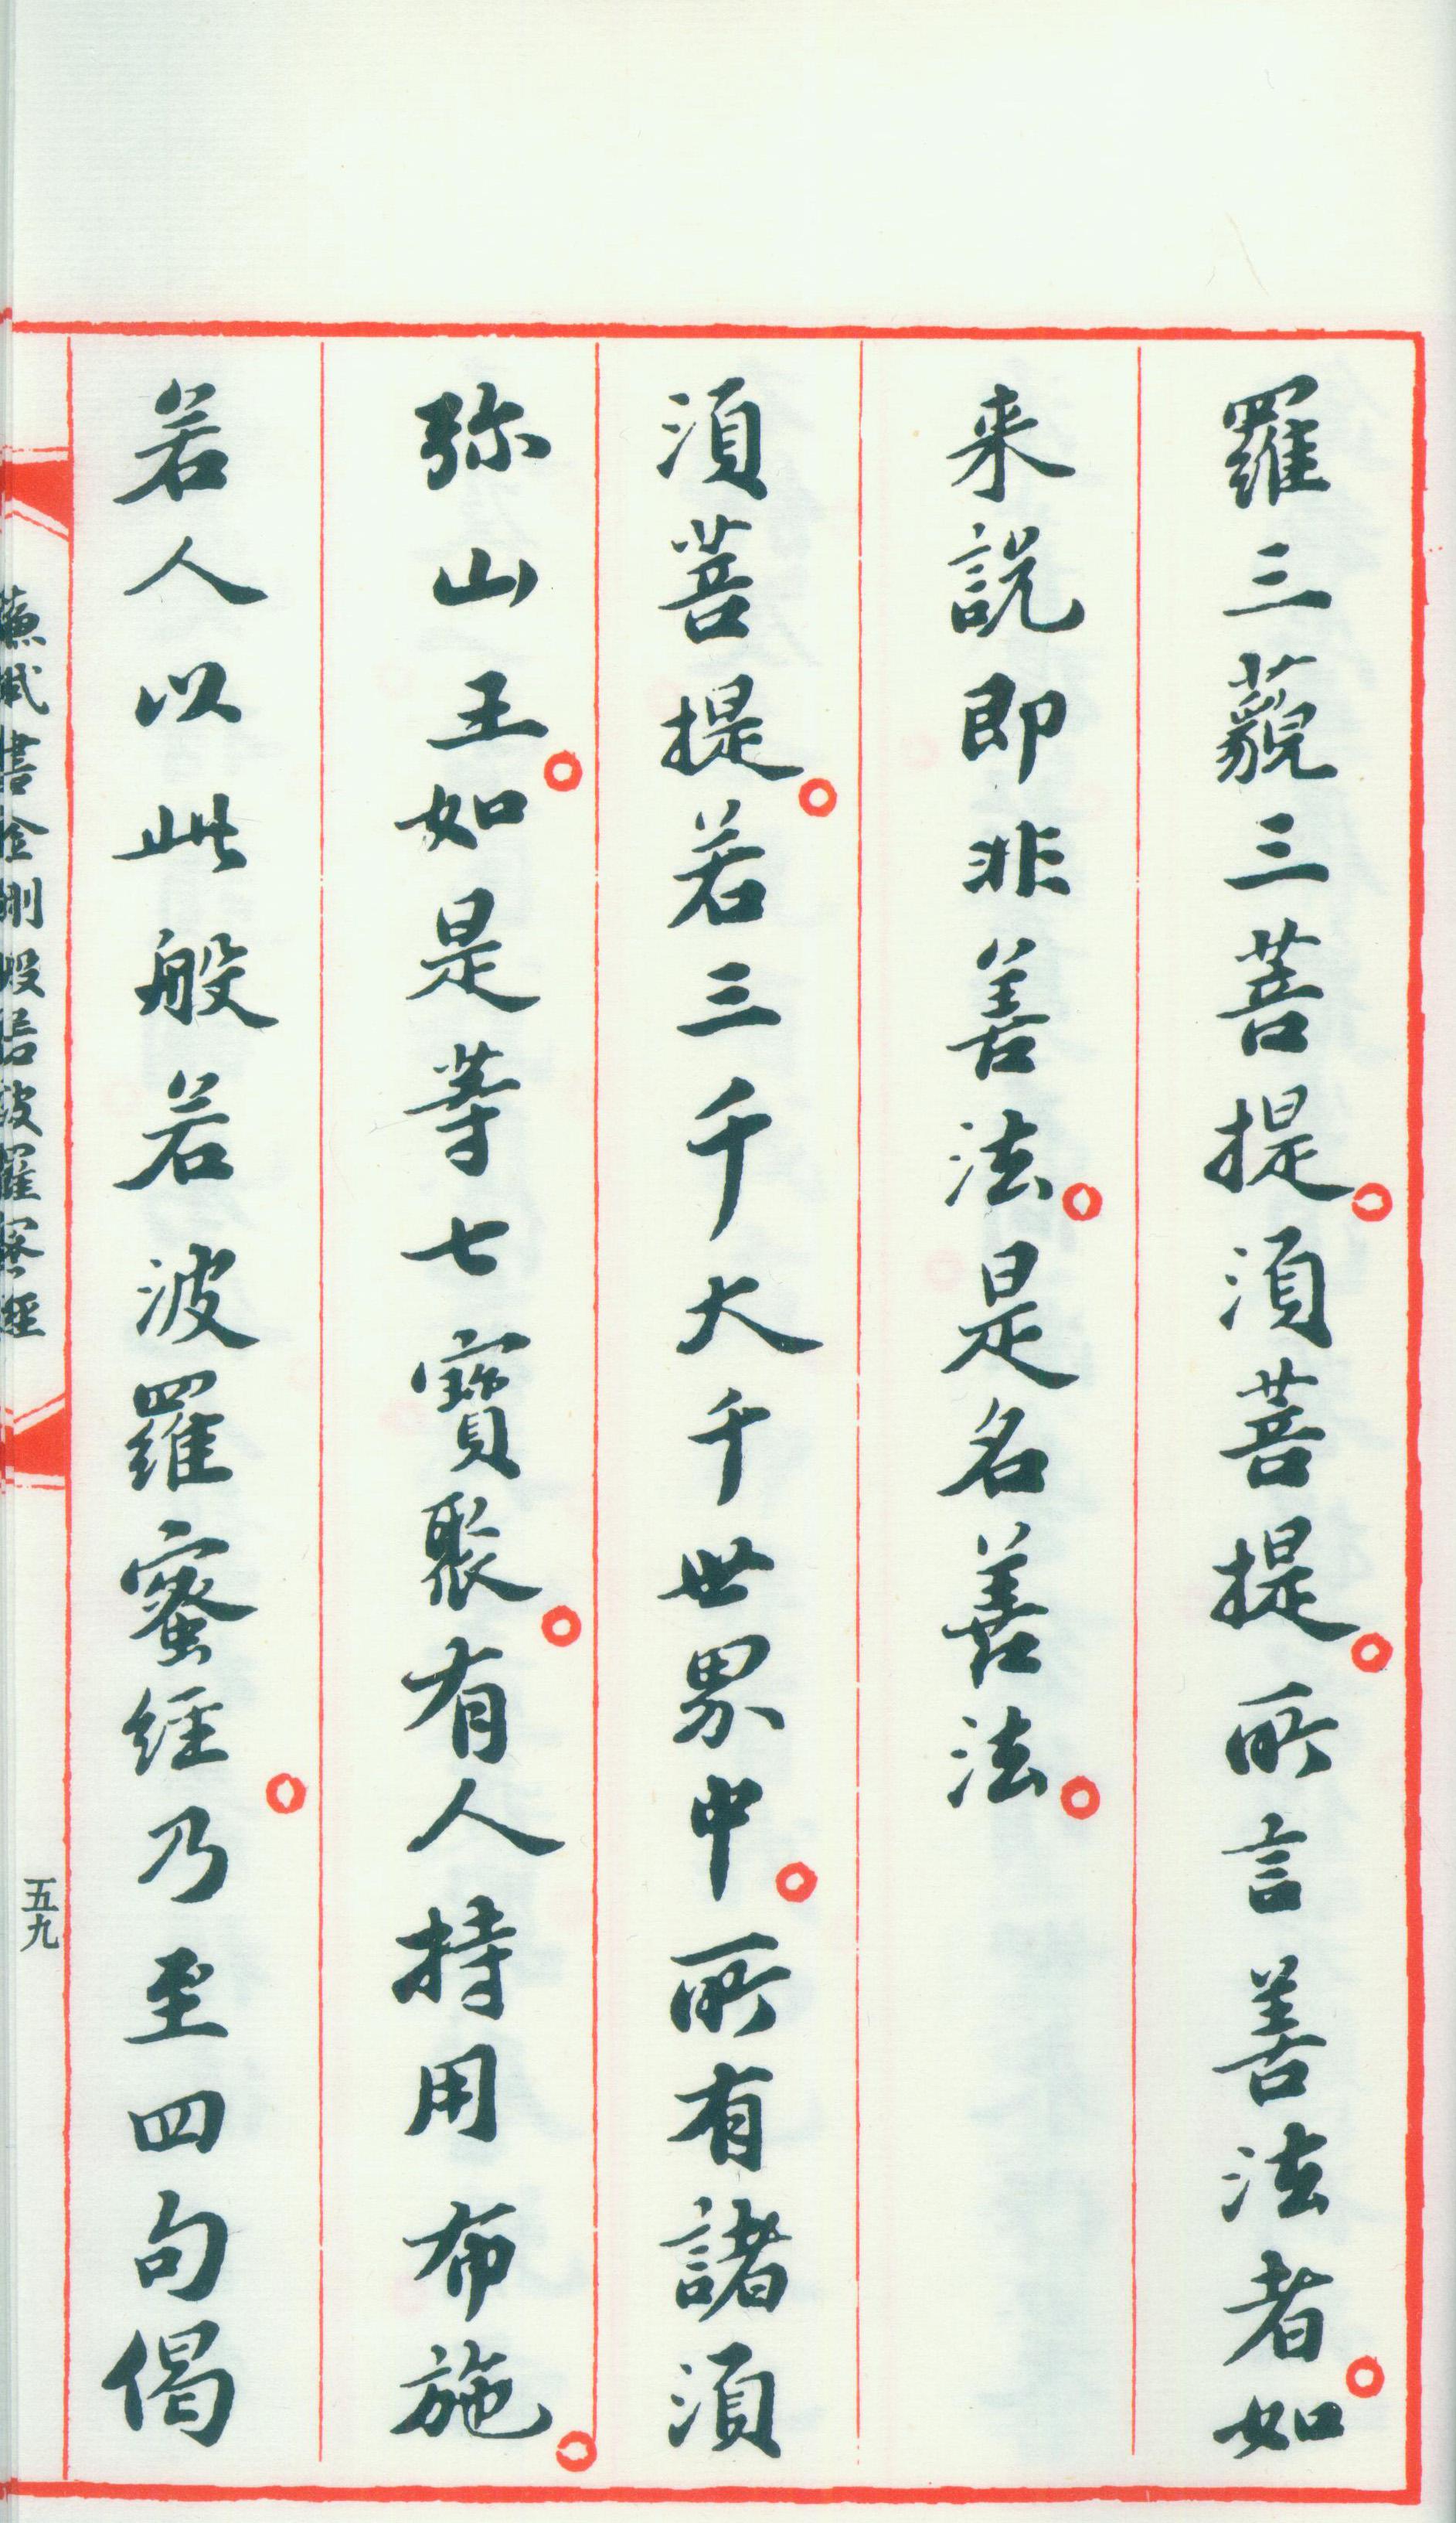 羅三藐三菩提。須菩提。所言善法者。如
来說即非善法。是名善法。
須菩提。若三千大千世界中。所有諸須
弥山王。如是等七寶聚。有人持用布施。
若人以此般若波羅蜜經。乃至四句偈
書金剛般若波羅蜜經
五九